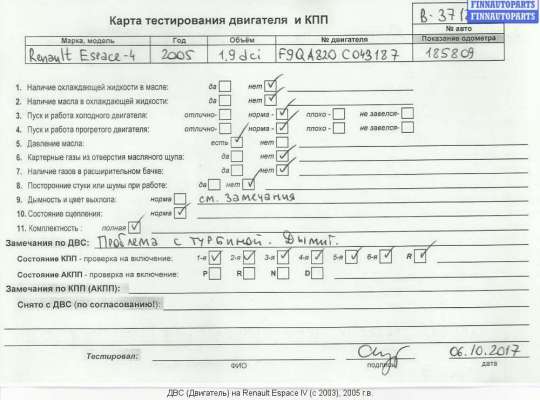 Карта тестирования двигателя и КПП
FINNAUTOPARTS
FINNAUTOPARTS
№ авто
Марка, модель Год Объём № двигателя Показание одометра
Renault Espace-4 2005 1,9 dci F9QA820 C043187 185809
1. Наличие охлаждающей жидкости в масле: да нет
2. Наличие масла в охлаждающей жидкости: да нет
3. Пуск и работа холодного двигателя: отлично- норма - плохо- не завелся-
4. Пуск и работа прогретого двигателя: отлично- норма - плохо - не завелся-
5. Давление масла: есть нет
6. Картерные газы из отверстия масляного щупа: да нет
7. Наличие газов в расширительном бачке: да нет
8. Посторонние стуки или шумы при работе: да нет
9. Дымность и цвет выхлопа: норма см. замечания
10. Состояние сцепления: норма
11. Комплектность : полная
Замечания по ДВС: Проблема с турбиной. Дымит.
Состояние КПП - проверка на включение: 1-я 2-я 3-я 4-я 5-я 6-я R
Состояние АКПП - проверка на включение: P R N D
Замечания по КПП (АКПП):
Снято с ДВС (по согласованию!):
Тестировал: 06.10.2017
ФИО подпись дата
ДВС (Двигатель) на Renault Espace IV (с 2003), 2005 г.в.